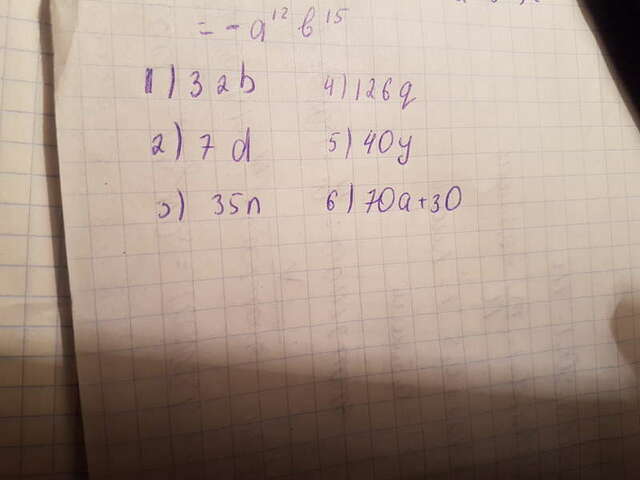 = - a¹² b¹⁵
1) 32b 4) 126q
2) 7d 5) 40y
3) 35n 6) 70a+30